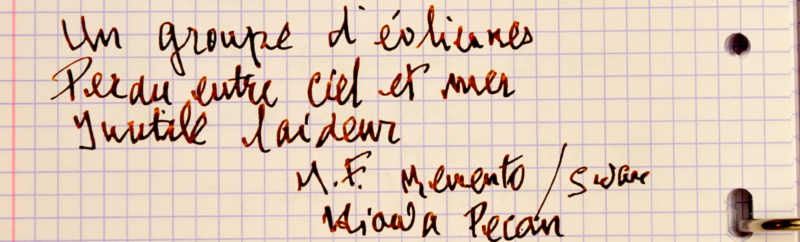 Un groupe d'éoliennes
Perdu entre ciel et mer
Inutile laideur
M.F. Memento / Swan
Kiowa Pecan